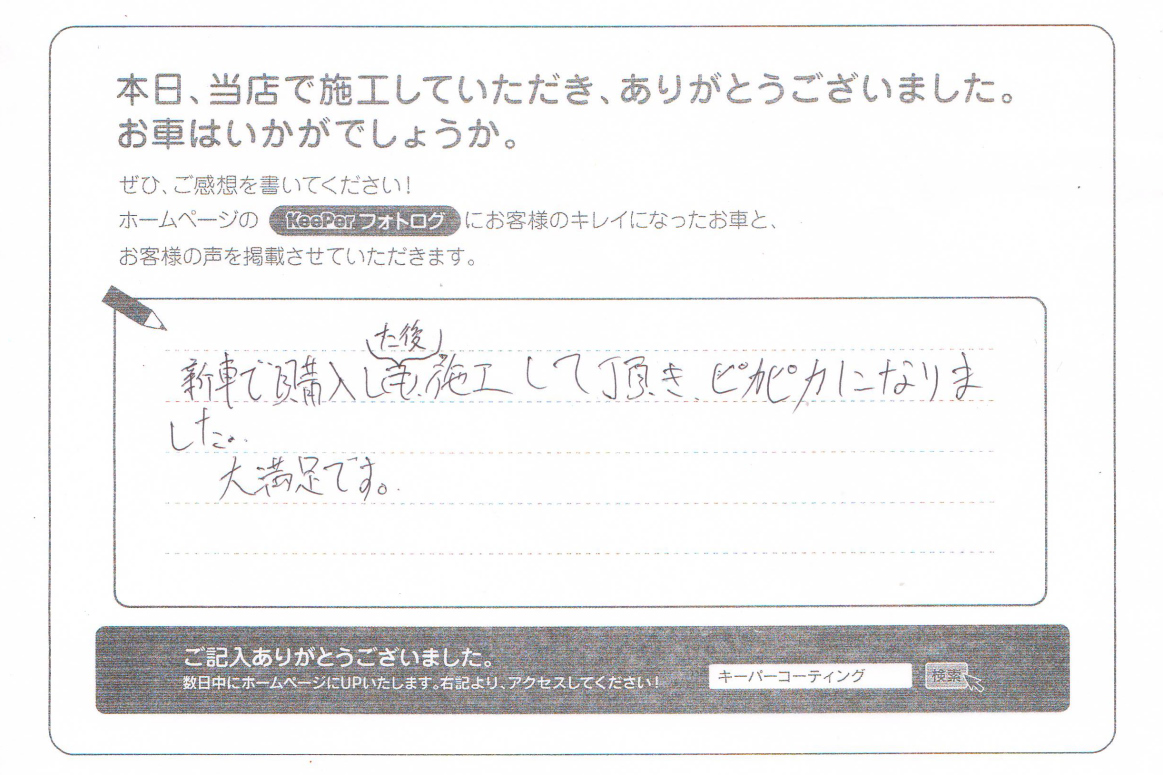 本日、当店で施工していただき、ありがとうございました。
お車はいかがでしょうか。
ぜひ、ご感想を書いてください!
ホームページの KeePer フォトログ にお客様のキレイになったお車と、
お客様の声を掲載させていただきます。
た後
新車で購入し施工して頂き、ピカピカになりま
した。
大満足です。
ご記入ありがとうございました。
数日中にホームページにUPいたします。右記より、アクセスしてください!
キーパーコーティング 検索